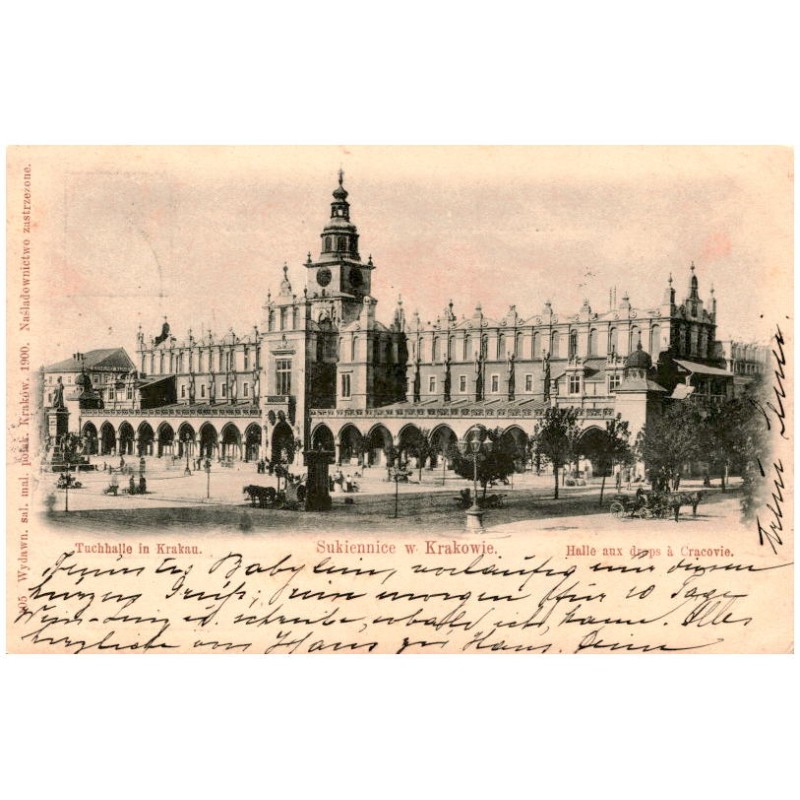 605 Wydawn. sal. mal. polsk. Kraków, 1900. Naśladownictwo zastrzeżone.
Tuchhalle in Krakau. Sukiennice w Krakowie. Halle aux draps à Cracovie.
vorläufig nur diesen
kurzen Gruß; bin morgen für 10 Tage
u. schreibe, sobald ich kann. Alles
herzliche von Haus zu Haus. Deine